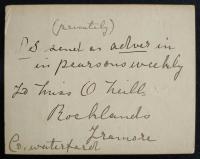 (privately)
Pls send as adver in
in pearsons weekly
To Miss O'Neill
Rocklands
Tramore
Co, waterford